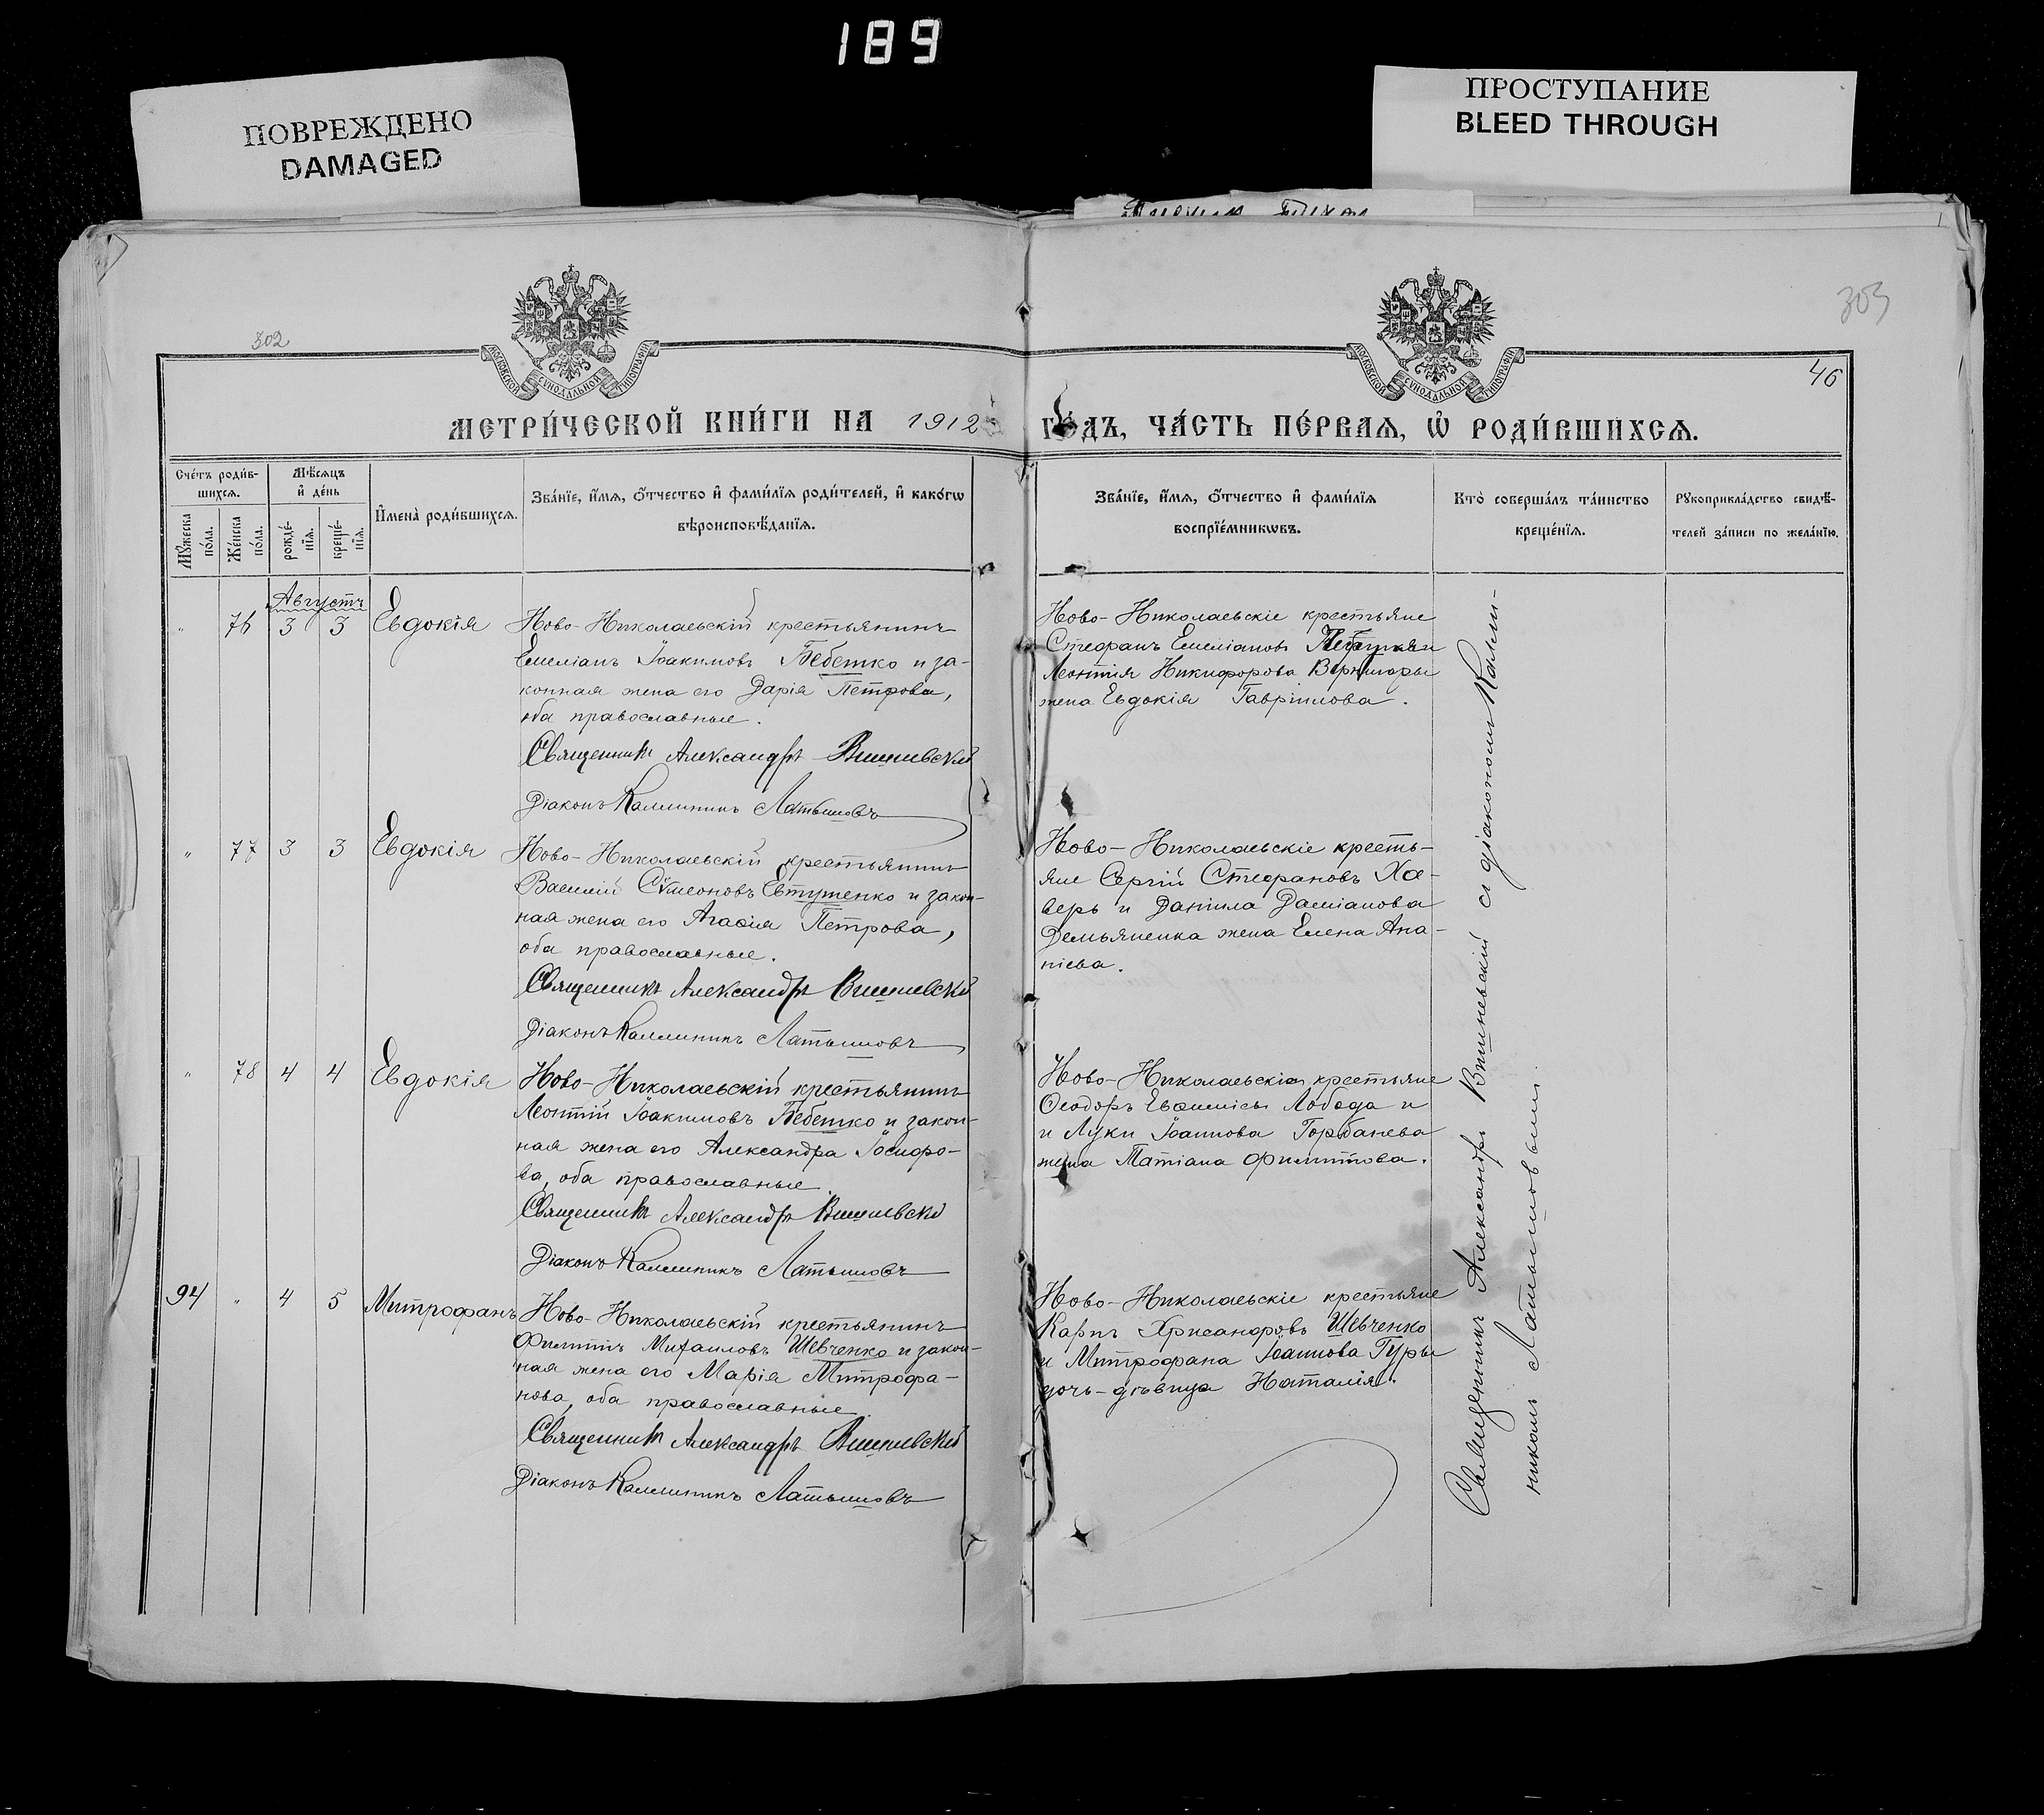 189
ПОВРЕЖДЕНО
DAMAGED
ПРОСТУПАНИЕ
BLEED THROUGH
302
303
46
МОСКОВСКОЙ СѴНОДАЛЬНОЙ ТИПОГРАФІИ
МОСКОВСКОЙ СѴНОДАЛЬНОЙ ТИПОГРАФІИ
МЕТРИ́ЧЕСКОЙ КНИ́ГИ НА 1912 ГО́ДЪ, ЧА́СТЬ ПЕ́РВАѦ, Ѡ҆ РОДИ́ВШИХСѦ.
Сче́тъ роди́в-
шихсѧ.
Мꙋ́жеска
по́ла.
Же́нска
по́ла.
Мѣ́сѧцъ
и҆ де́нь
рожде́-
нїѧ.
креще́-
нїѧ.
И҆мена̀ роди́вшихсѧ.
Зва́нїе, и҆́мѧ, ѻ҆́тчество и҆ фами́лїѧ роди́телей, и҆ како́гѡ
вѣроисповѣ́данїѧ.
Зва́нїе, и҆́мѧ, ѻ҆́тчество и҆ фами́лїѧ
воспрїе́мникѡвъ.
Кто̀ соверша́лъ та́инство
креще́нїѧ.
Рꙋкоприкла́дство свидѣ́-
телей за́писи по жела́нїю.
Августъ
" 76 3 3 Евдокія
Ново-Николаевскій крестьянинъ
Емеліанъ Іоакимовъ Бебешко и за-
конная жена его Дарія Петрова,
оба православные.
Священникъ Александръ Вишневскій
Діаконъ Каллиникъ Латышовъ
Ново-Николаевскіе крестьяне
Стефанъ Емеліановъ
Леонтія Никифорова Вернигоры
жена Евдокія Гавріилова.
" 77 3 3 Евдокія
Ново-Николаевскій крестьянинъ
Василій Сѵмеоновъ Евтушенко и закон-
ная жена его Агаѳія Петрова,
оба православные.
Священникъ Александръ Вишневскій
Діаконъ Каллиникъ Латышовъ
Ново-Николаевскіе кресть-
яне Сергій Стефановъ Ха-
верь и Даніила Даміанова
Демьяненка жена Елена Ана-
ніева.
" 78 4 4 Евдокія
Ново-Николаевскій крестьянинъ
Леонтій Іоакимовъ Бебешко и закон-
ная жена его Александра Іосифо-
ва, оба православные.
Священникъ Александръ Вишневскій
Діаконъ Каллиникъ Латышовъ
Ново-Николаевскіе крестьяне
Ѳеодоръ Лобода и
и Луки Іоаннова Горбанева
жена Татіана Филиппова.
94 " 4 5 Митрофанъ
Ново-Николаевскій крестьянинъ
Филиппъ Михаиловъ Шевченко и закон-
ная жена его Марія Митрофа-
нова, оба православные.
Священникъ Александръ Вишневскій
Діаконъ Каллиникъ Латышовъ
Ново-Николаевскіе крестьяне
Карпъ Хрисанфовъ Шевченко
и Митрофана Іоаннова Гуры
дочь-дѣвица Наталія.
Священникъ Александръ Вишневскій съ діакономъ Калли-
никомъ Латышовымъ.